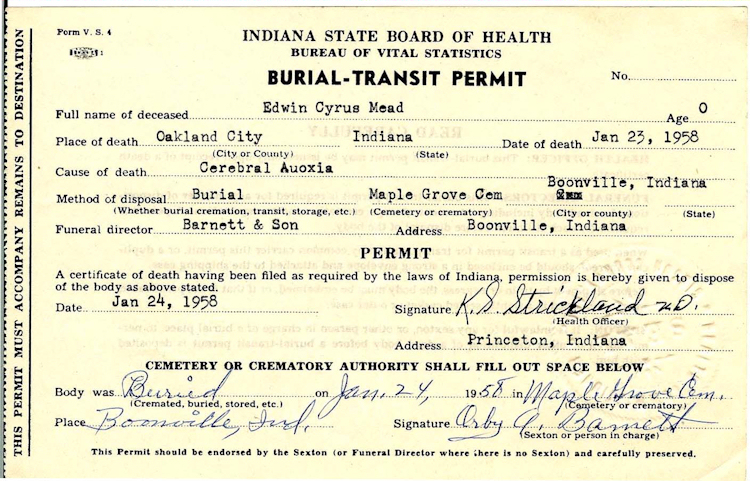 Form V. S. 4
INDIANA STATE BOARD OF HEALTH
BUREAU OF VITAL STATISTICS
BURIAL-TRANSIT PERMIT
No.
Full name of deceased Edwin Cyrus Mead Age 0
Place of death Oakland City Indiana Date of death Jan 23, 1958
(City or County) (State)
Cause of death Cerebral Auoxia
Boonville, Indiana
Method of disposal Burial Maple Grove Cem
(Whether burial cremation, transit, storage, etc.) (Cemetery or crematory) (City or county) (State)
Funeral director Barnett & Son Address Boonville, Indiana
PERMIT
A certificate of death having been filed as required by the laws of Indiana, permission is hereby given to dispose
of the body as above stated.
Date Jan 24, 1958 Signature K. S. Strickland M.D.
(Health Officer)
Address Princeton, Indiana
CEMETERY OR CREMATORY AUTHORITY SHALL FILL OUT SPACE BELOW
Body was Buried on Jan. 24, 1958 in Maple Grove Cem.
(Cremated, buried, stored, etc.) (Cemetery or crematory)
Place Boonville, Ind. Signature Orby A. Barnett
(Sexton or person in charge)
This Permit should be endorsed by the Sexton (or Funeral Director where there is no Sexton) and carefully preserved.
THIS PERMIT MUST ACCOMPANY REMAINS TO DESTINATION